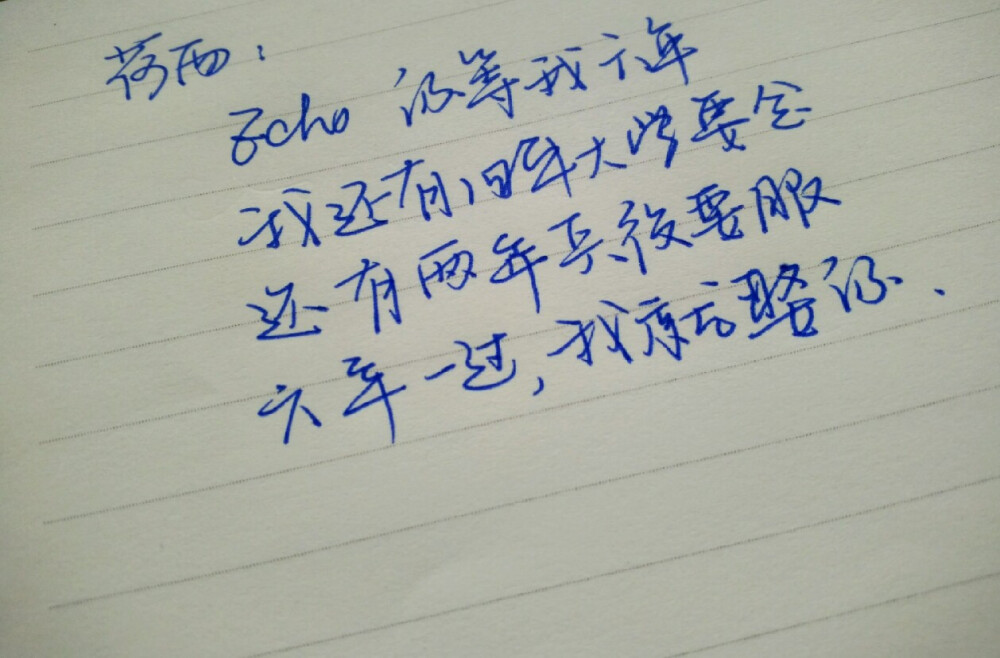 荷西:
Echo 你等我六年
我还有四年大学要念
还有两年兵役要服
六年一过,我就娶你.